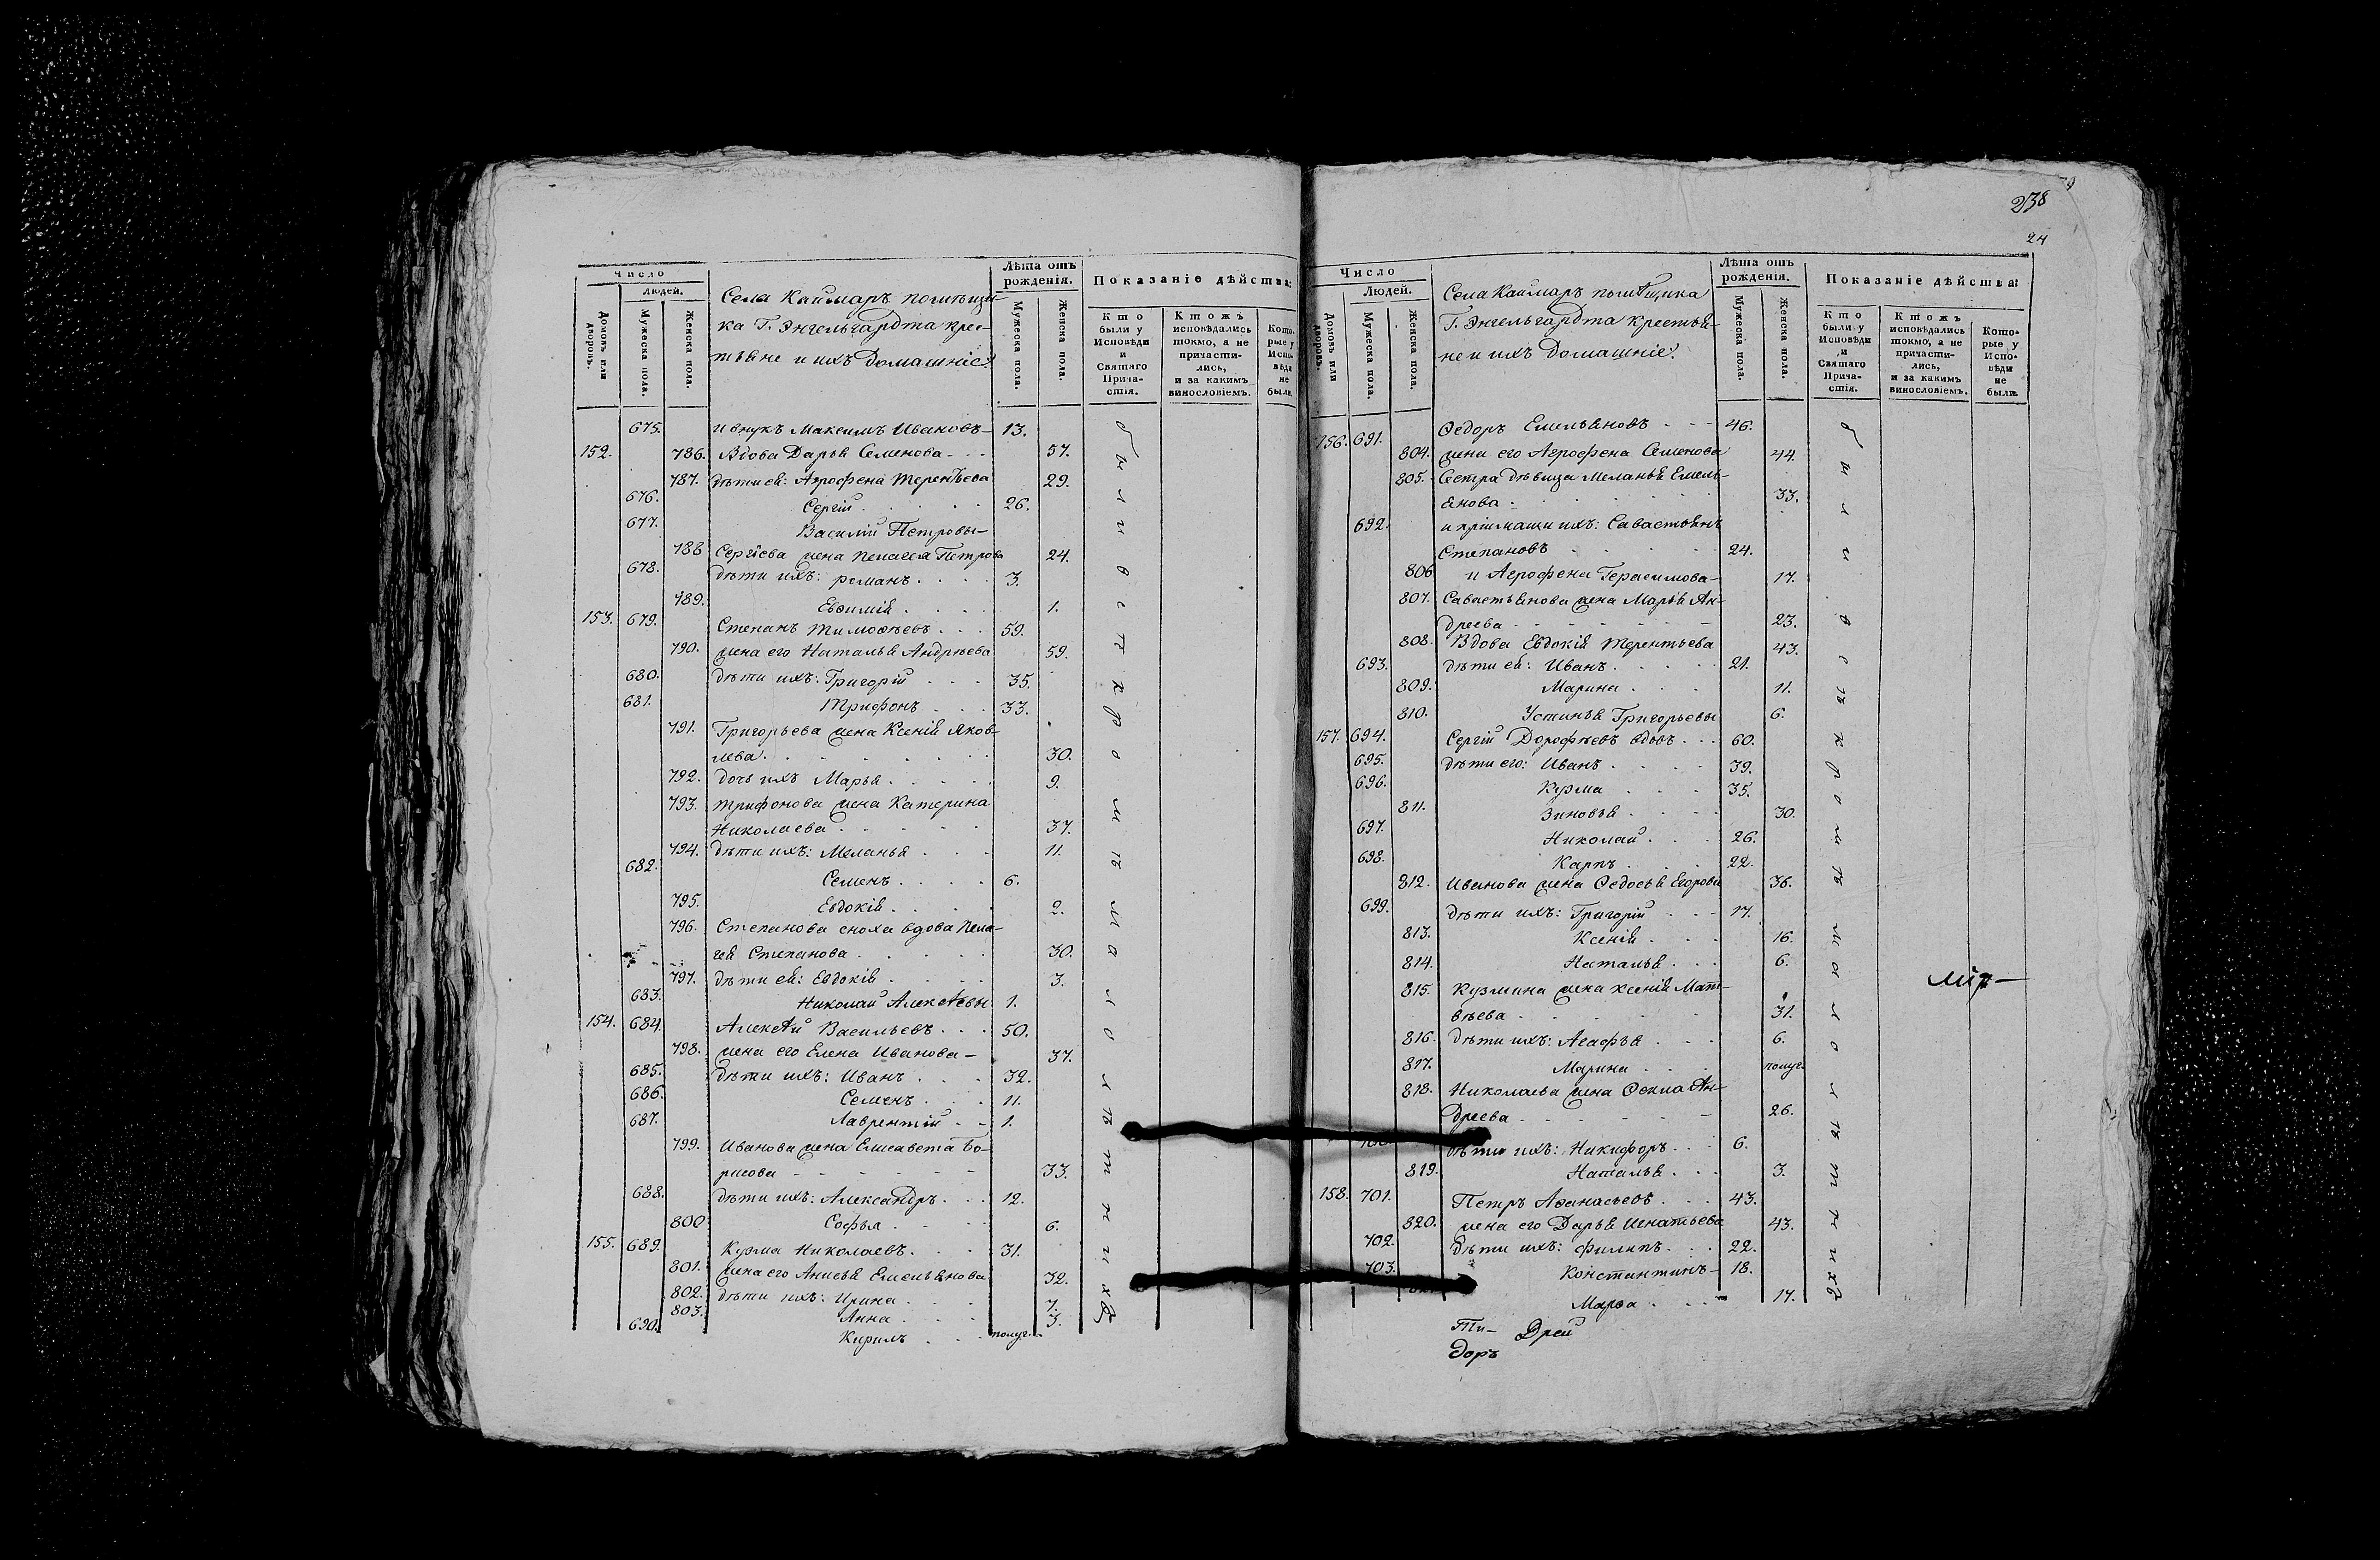 238
24
Число
Людей.
Домовъ или дворовъ.
Мужеска пола.
Женска пола.
Села Каймаръ помѣщи-
ка Г. Энгельгардта крес-
тьяне и ихъ домашніе.
Лѣта отъ рожденія.
Мужеска пола.
Женска пола.
Показаніе дѣйства:
Кто были у Исповѣди и Святаго Причастія.
Ктожъ исповѣдались токмо, а не причастились, и за какимъ винословіемъ.
Которые у Исповѣди не были.
675. и внукъ Максимъ Ивановъ 13.
152. 786. Вдова Дарья Семенова 57.
787. дѣти ея: Агрофена Терентьева 29.
676. Сергій 26.
677. Василий Петровы
788 Сергіева жена Пелагея Петрова 24.
678. дѣти ихъ: Романъ 3.
789. Евфимія 1.
153. 679. Степанъ Тимофѣевъ 59.
790. жена его Наталья Андрѣева 59.
680. дѣти ихъ: Григорій 35.
681. Трифонъ 33.
791. Григорьева жена Ксенія Яков-
лева 30.
792. дочь ихъ Марья 9.
793. Трифонова жена Катерина
Николаева 37.
794. дѣти ихъ: Меланья 11.
682. Семенъ 6.
795. Евдокія 2.
796. Степанова сноха вдова Пела-
гея Степанова 30.
797. дѣти ея: Евдокія 3.
683. Николай Алексѣевы 1.
154. 684. Алексѣй Васильевъ 50.
798. жена его Елена Иванова 37.
685. дѣти ихъ: Иванъ 32.
686. Семенъ 11.
687. Лаврентій 1.
799. Иванова жена Елисавета Бо-
рисова 33.
688. дѣти ихъ: Александръ 12.
800 Софья 6.
155. 689. Кузма Николаевъ 31.
801. жена его Анисья Емельянова 32.
802. дѣти ихъ: Ирина 7.
803. Анна 3.
690. Кирилъ полуг.
были вс ѣ кромѣ малолѣтнихъ
Число
Людей.
Домовъ или дворовъ.
Мужеска пола.
Женска пола.
Села Каймаръ помѣщика
Г. Энгельгардта крестья-
не и ихъ домашніе.
Лѣта отъ рожденія.
Мужеска пола.
Женска пола.
Показаніе дѣйства:
Кто были у Исповѣди и Святаго Причастія.
Ктожъ исповѣдались токмо, а не причастились, и за какимъ винословіемъ.
Которые у Исповѣди не были.
156. 691. Федоръ Емельяновъ 46.
804. жена его Агрофена Семенова 44.
805. Сестра дѣвица Меланья Емель-
янова 33.
692. и пріимаши ихъ: Савастьянъ
Степановъ 24.
806 и Агрофена Герасимова 17.
807. Савастьянова жена Марья Ан-
дреева 23.
808. Вдова Евдокія Терентьева 43.
693. дѣти ея: Иванъ 21.
809. Марина 11.
810. Устинья Григорьевы 6.
157. 694. Сергій Дорофѣевъ вдовъ 60.
695. дѣти его: Иванъ 39.
696. Кузма 35.
811. Зиновья 30.
697. Николай 26.
698. Карпъ 22.
812. Иванова жена Федосья Егорова 36.
699. дѣти ихъ: Григорій 17.
813. Ксенія 16.
814. Наталья 6.
815. Кузмина жена Ксенія Мат-
вѣева 31.
816. дѣти ихъ: Агафья 6.
817. Марина полуг.
818. Николаева жена Фекла Ан-
дреева 26.
дѣти ихъ: Никифоръ 6.
819. Наталья 3.
158. 701. Петръ Афанасьевъ 43.
820. жена его Дарья Игнатьева 43.
702. дѣти ихъ: Филипъ 22.
703. Константинъ 18.
Марфа 17.
были всѣ кромѣ малолѣтнихъ
Ти- Дрей
доръ